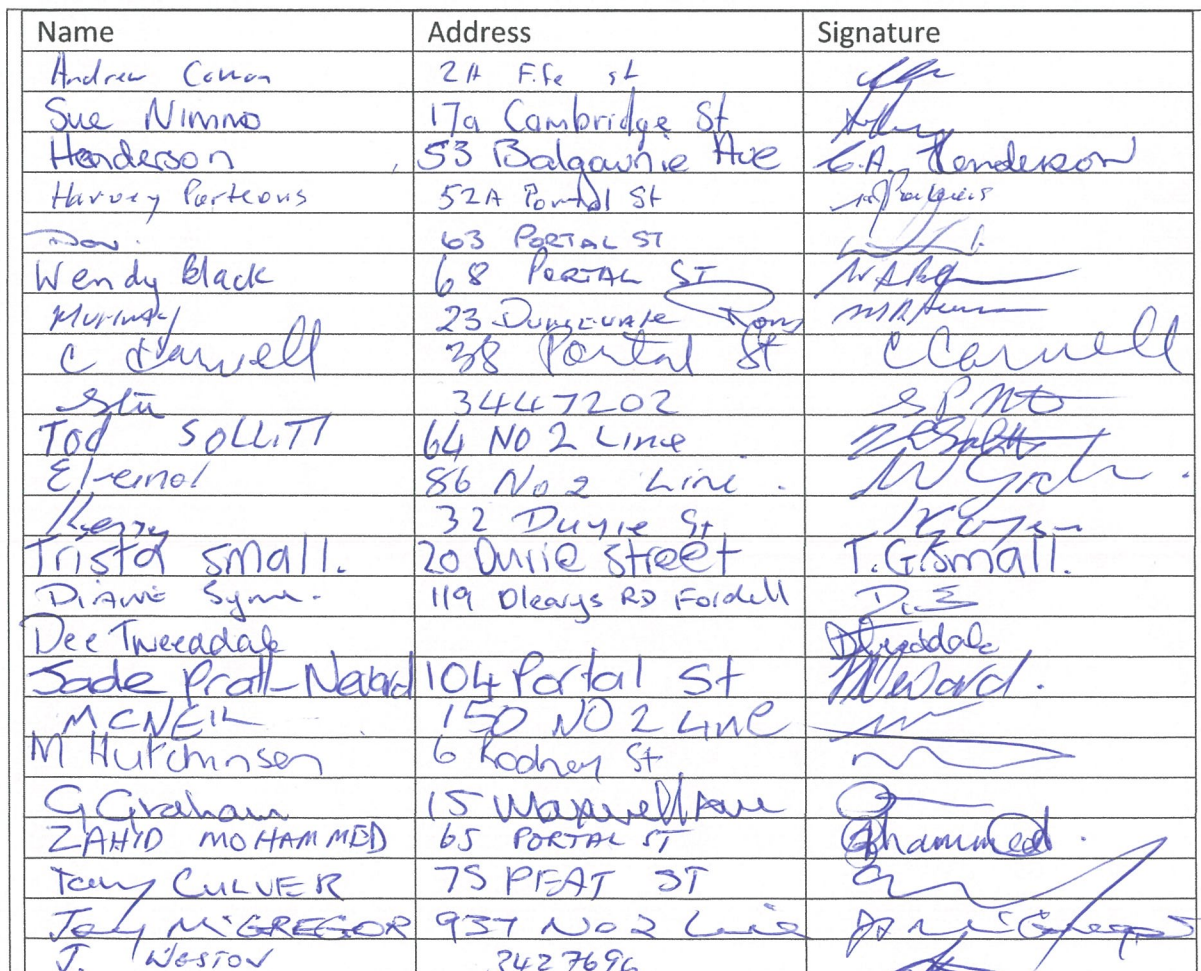 Name Address Signature
Andrew 2A Fife st
Sue Nimmo 17a Cambridge St
Henderson 53 Balgownie Ave G.A. Henderson
Harvey Porteous 52A Portal St
63 PORTAL ST
Wendy Black 68 PORTAL ST
Murray 23 Dungevale
C Carvell 38 Portal St C Carvell
Stu 34472202
Tod SOLLITT 64 NO 2 Line
86 No 2 Line.
Kerry 32 Durie St
Trista small. 20 Durie street T.G.Small.
DIANE Syme. 119 Olearys RD Fordell D.S
Dee Tweeddale DTweeddale
Jade Pratt-Neward 104 Portal St
MCNEIL 150 NO 2 LINE
M Hutchinson 6 Rodney St
G Graham 15 Maxwell Ave
ZAHID MOHAMMED 65 PORTAL ST
Tony CULVER 75 PEAT ST
McGREGOR 937 No 2 Line McGregor
J. WESTON 3427696